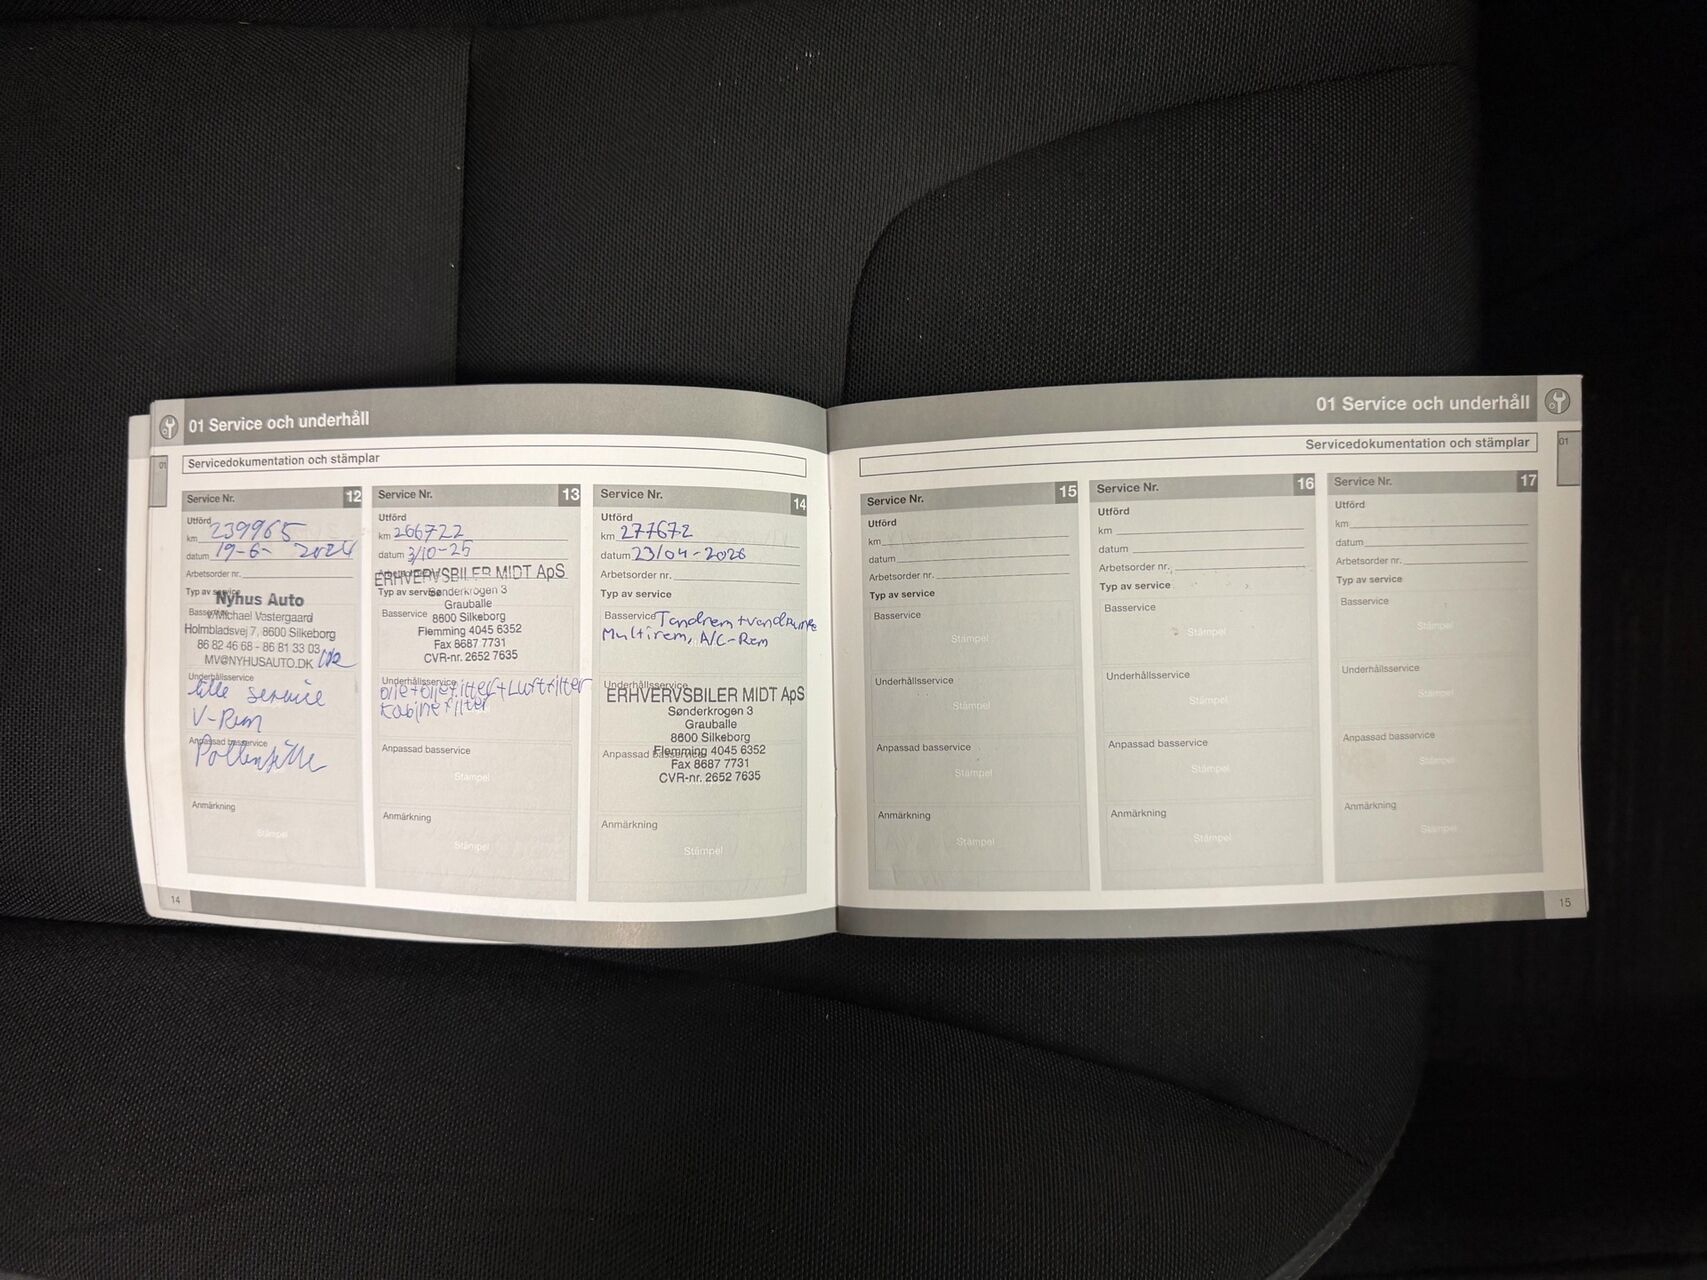 01 Service och underhåll
01
Servicedokumentation och stämplar
Service Nr. 12
Utförd
km 239965
datum 19-6- 2024
Arbetsorder nr.
Typ av service
Nyhus Auto
Basservice
v/Michael Vastergaard
Holmbladsvej 7, 8600 Silkeborg
86 82 46 68 - 86 81 33 03
MV@NYHUSAUTO.DK
Underhållsservice
lille service
V-Rem
Anpassad basservice
Pollenfilter
Anmärkning
Stämpel
Service Nr. 13
Utförd
km 266722
datum 3/10-25
Arbetsorder nr.
ERHVERVSBILER MIDT ApS
Typ av service
Sønderkrogen 3
Grauballe
Basservice
8600 Silkeborg
Flemming 4045 6352
Fax 8687 7731
CVR-nr. 2652 7635
Underhållsservice
olie+oliefilter+Luftfilter
Kabinefilter
Anpassad basservice
Stämpel
Anmärkning
Stämpel
Service Nr. 14
Utförd
km 277672
datum 23/04-2026
Arbetsorder nr.
Typ av service
Basservice Tandrem+vandpumpe
Multirem, A/C-Rem
Underhållsservice
ERHVERVSBILER MIDT ApS
Sønderkrogen 3
Grauballe
8600 Silkeborg
Anpassad basservice
Flemming 4045 6352
Fax 8687 7731
CVR-nr. 2652 7635
Anmärkning
Stämpel
14
01 Service och underhåll
01
Servicedokumentation och stämplar
Service Nr. 15
Utförd
km
datum
Arbetsorder nr.
Typ av service
Basservice
Stämpel
Underhållsservice
Stämpel
Anpassad basservice
Stämpel
Anmärkning
Stämpel
Service Nr. 16
Utförd
km
datum
Arbetsorder nr.
Typ av service
Basservice
Stämpel
Underhållsservice
Stämpel
Anpassad basservice
Stämpel
Anmärkning
Stämpel
Service Nr. 17
Utförd
km
datum
Arbetsorder nr.
Typ av service
Basservice
Stämpel
Underhållsservice
Stämpel
Anpassad basservice
Stämpel
Anmärkning
Stämpel
15